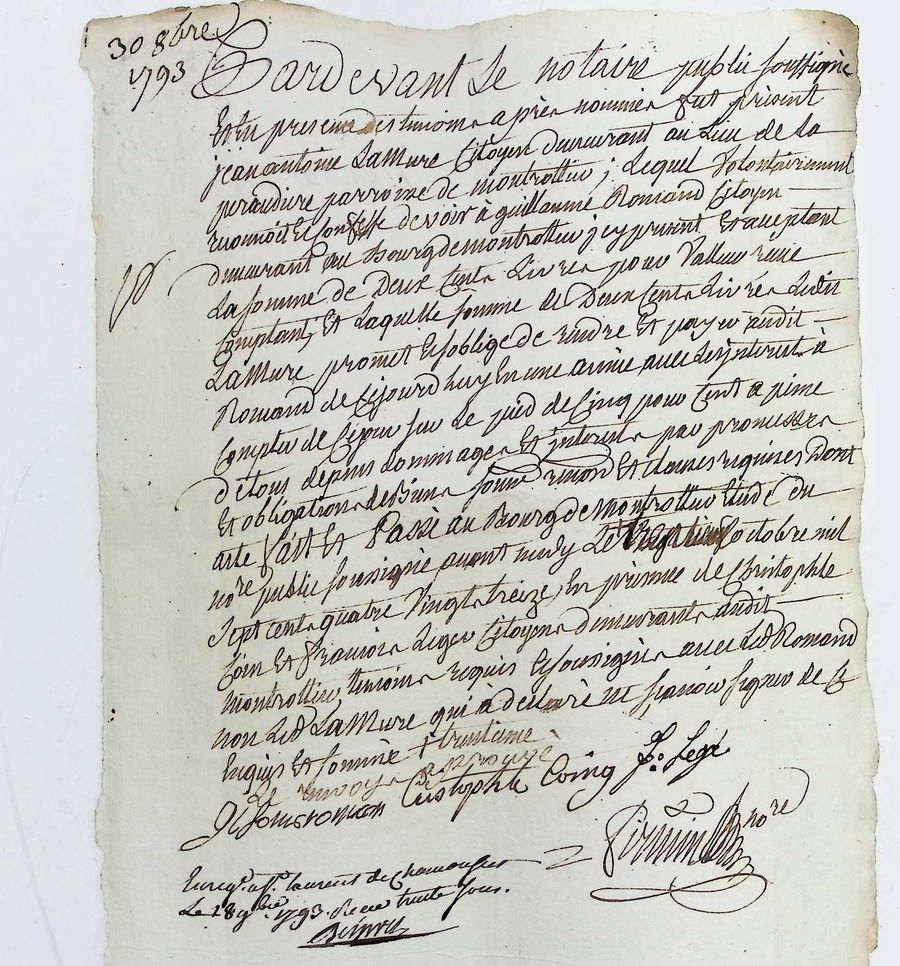 30 8bre
1793
Pardevant Le notaire publi soussigne
Et En presence des temoins apres nommes fut present
jean antoine LaMure Citoyen demeurant au Lieu de la
peraudiere parroisse de montrottier ; Lequel Volontairement
reconnoit Et Confesse devoir à guillaume Romand Citoyen
demeurant au Bourg de montrottier jcy present Et aceptant
La somme de Deux Cents Livres pour Valleur réelle
Comptant, Et Laquelle somme de Deux Cents Livres Ledit
LaMure promet Et soblige de rendre Et payer audit
Romand de Cejourdhuy En une année avec Les jnterets à
Compter de Cejour sur Le pied de Cinq pour Cent a peine
de tous depens dommages Et jnterets par promesses
Et obligations de Biens soumi renon Et clauses requises Dont
acte fait Et Passé au Bourg de montrottier Etude du
nore public soussigné avant midy Le octobre mil
sept cents quatre Vingts treize, En presence de Christophle
Coin Et francois Leger Citoyens demeurants audit
montrottier temoins requis Et soussignes avec Led Romand
non Led LaMure qui à declaré ne scavoir signer de Ce
Enquis Et sommé + trentieme
Le renvoy approuvé
G soms roman Cristophle Coing f. Legé
nore
Enregt. à St. laurent de chamousset
Le 18 9bre. 1793. Recu trente sous.